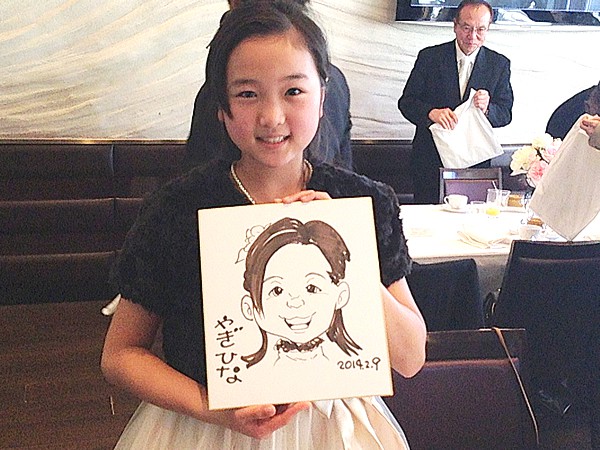 やぎひな
2014.2.9